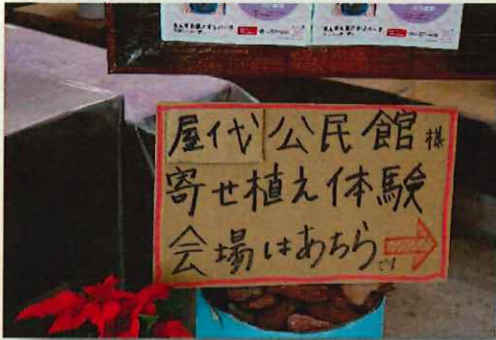 屋代公民館様
寄せ植え体験
会場はあちら